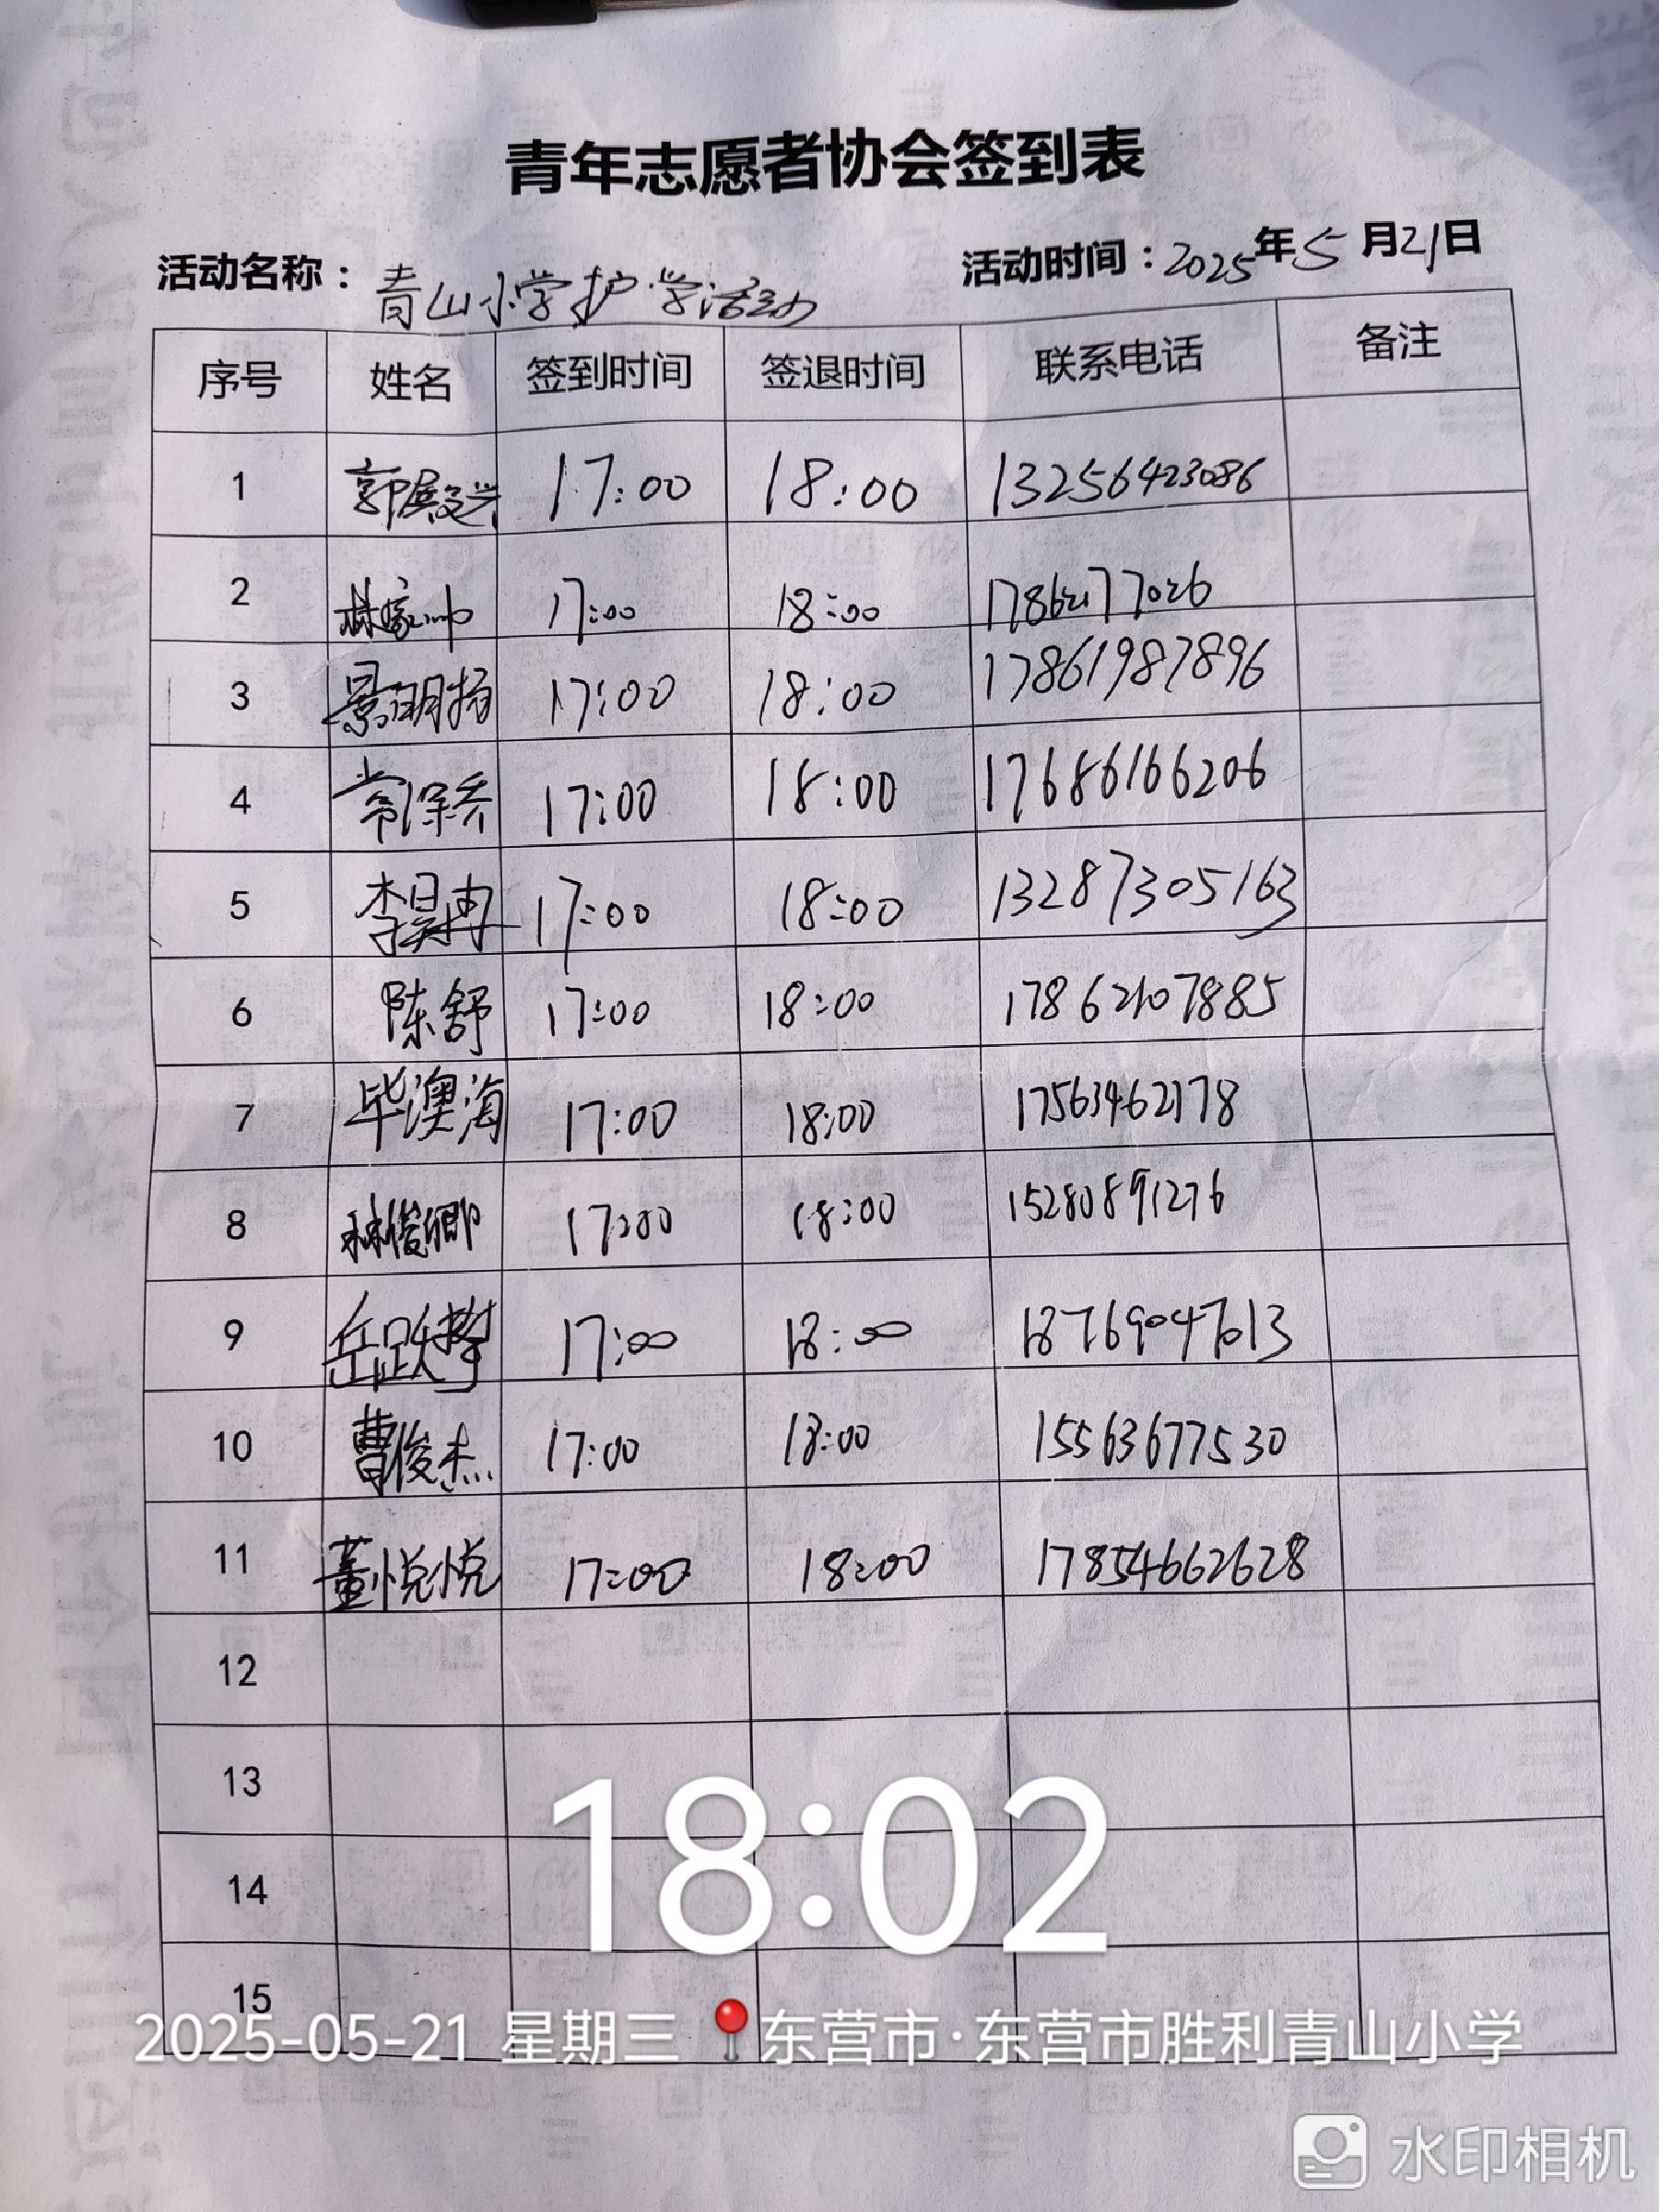 青年志愿者协会签到表
活动名称：青山小学护学活动 活动时间：2025年5月21日
序号 姓名 签到时间 签退时间 联系电话 备注
1 郭殿兴 17:00 18:00 13256423086
2 林家 17:00 18:00 17862177026
3 景明扬 17:00 18:00 17861987896
4 常保乔 17:00 18:00 17686166206
5 李昊冉 17:00 18:00 13287305163
6 陈舒 17:00 18:00 17862107885
7 毕澳海 17:00 18:00 17563462178
8 林俊卿 17:00 18:00 15280891276
9 岳跃攀 17:00 18:00 18769047013
10 曹俊杰 17:00 18:00 15563677530
11 董悦悦 17:00 18:00 17854662628
12
13
18:02
14
15
2025-05-21 星期三 东营市·东营市胜利青山小学
水印相机